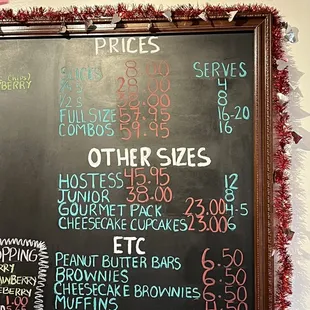 PRICES
SERVES
4
8
FULL SIZE 57.95 16-20
COMBOS 59.95 16
OTHER SIZES
HOSTESS 45.95 12
JUNIOR 38.00 8
GOURMET PACK 23.00 4-5
CHEESECAKE CUPCAKES 23.00 6
ETC
PEANUT BUTTER BARS 6.50
BROWNIES 6.50
CHEESECAKE BROWNIES 6.50
MUFFINS
OPPING
RRY
AWBERRY
EBERRY
1.00
BERRY